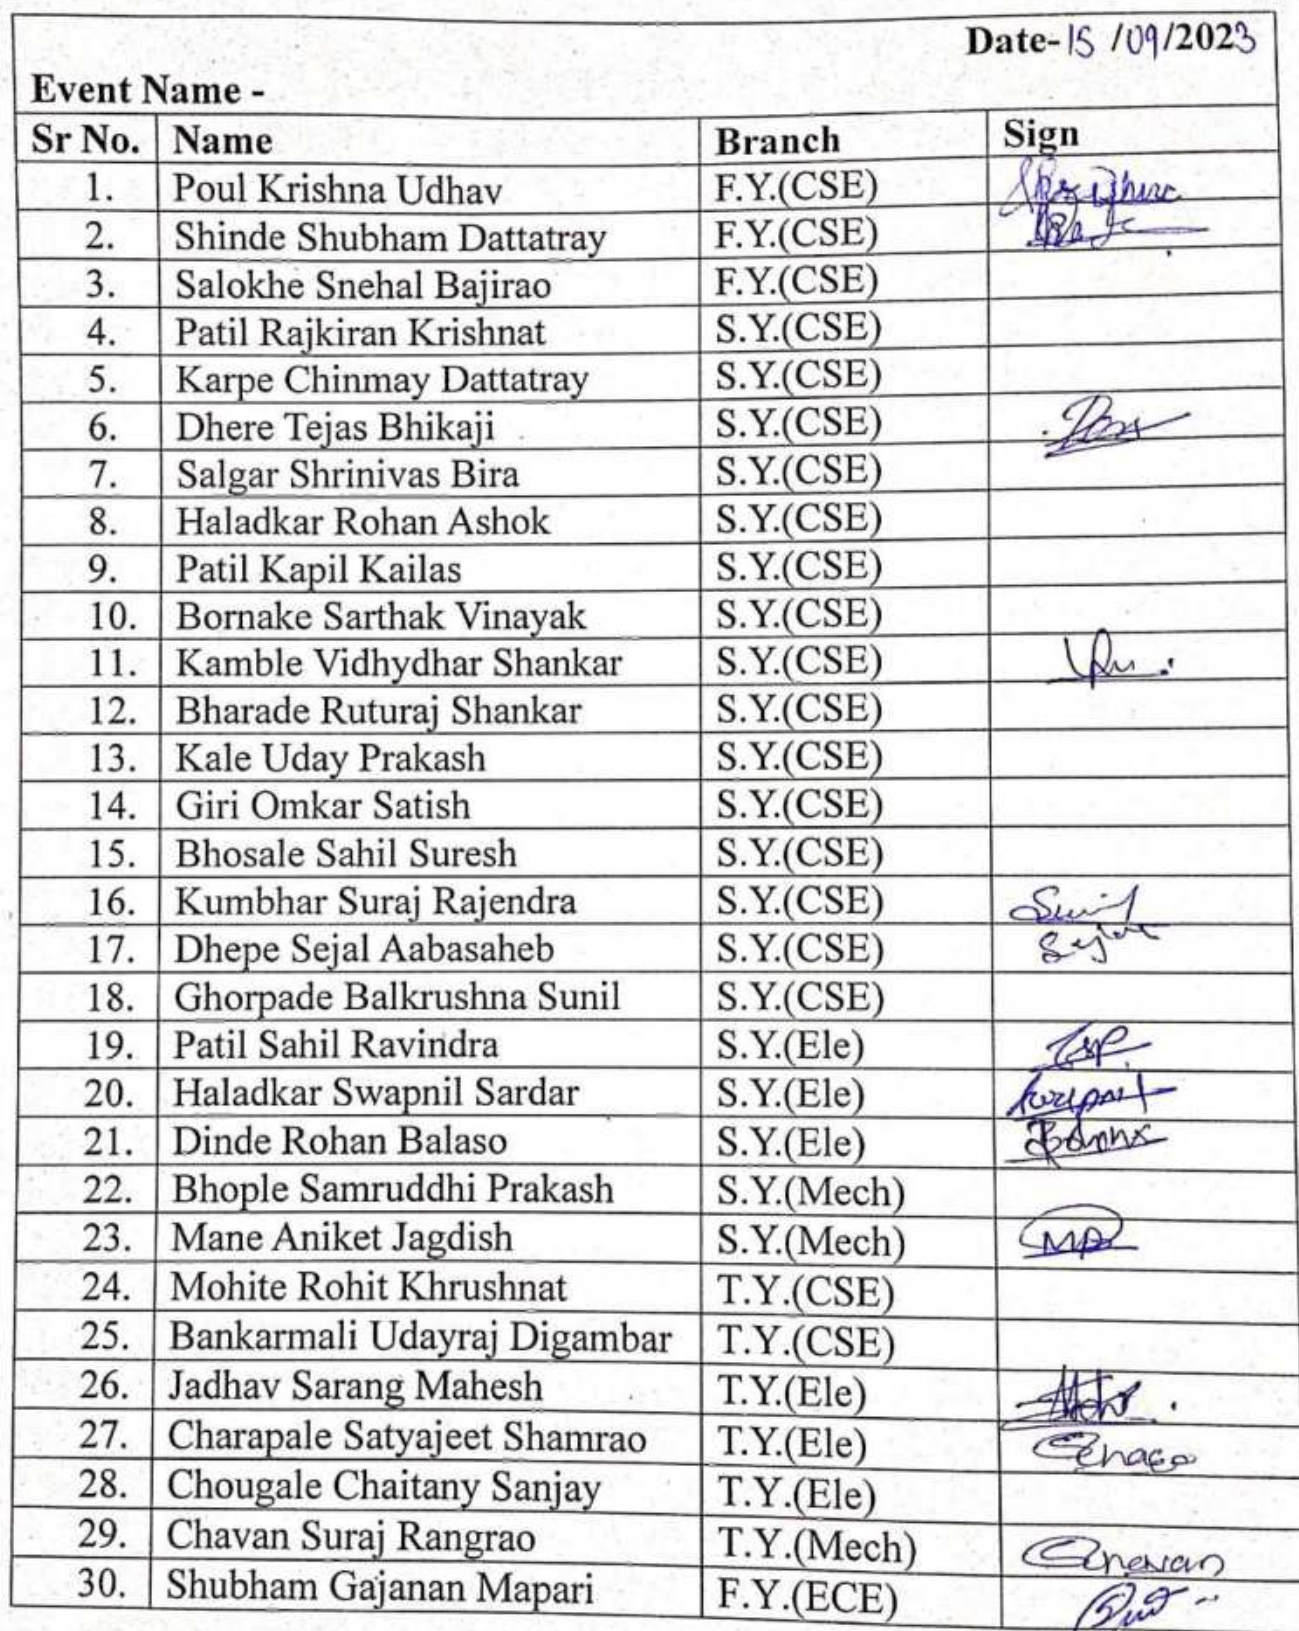 Date-15/09/2023
Event Name -
Sr No. Name Branch Sign
1. Poul Krishna Udhav F.Y.(CSE)
2. Shinde Shubham Dattatray F.Y.(CSE)
3. Salokhe Snehal Bajirao F.Y.(CSE)
4. Patil Rajkiran Krishnat S.Y.(CSE)
5. Karpe Chinmay Dattatray S.Y.(CSE)
6. Dhere Tejas Bhikaji S.Y.(CSE)
7. Salgar Shrinivas Bira S.Y.(CSE)
8. Haladkar Rohan Ashok S.Y.(CSE)
9. Patil Kapil Kailas S.Y.(CSE)
10. Bornake Sarthak Vinayak S.Y.(CSE)
11. Kamble Vidhydhar Shankar S.Y.(CSE)
12. Bharade Ruturaj Shankar S.Y.(CSE)
13. Kale Uday Prakash S.Y.(CSE)
14. Giri Omkar Satish S.Y.(CSE)
15. Bhosale Sahil Suresh S.Y.(CSE)
16. Kumbhar Suraj Rajendra S.Y.(CSE)
17. Dhepe Sejal Aabasaheb S.Y.(CSE) Sejal
18. Ghorpade Balkrushna Sunil S.Y.(CSE)
19. Patil Sahil Ravindra S.Y.(Ele)
20. Haladkar Swapnil Sardar S.Y.(Ele)
21. Dinde Rohan Balaso S.Y.(Ele)
22. Bhople Samruddhi Prakash S.Y.(Mech)
23. Mane Aniket Jagdish S.Y.(Mech)
24. Mohite Rohit Khrushnat T.Y.(CSE)
25. Bankarmali Udayraj Digambar T.Y.(CSE)
26. Jadhav Sarang Mahesh T.Y.(Ele)
27. Charapale Satyajeet Shamrao T.Y.(Ele)
28. Chougale Chaitany Sanjay T.Y.(Ele)
29. Chavan Suraj Rangrao T.Y.(Mech) Chavan
30. Shubham Gajanan Mapari F.Y.(ECE)